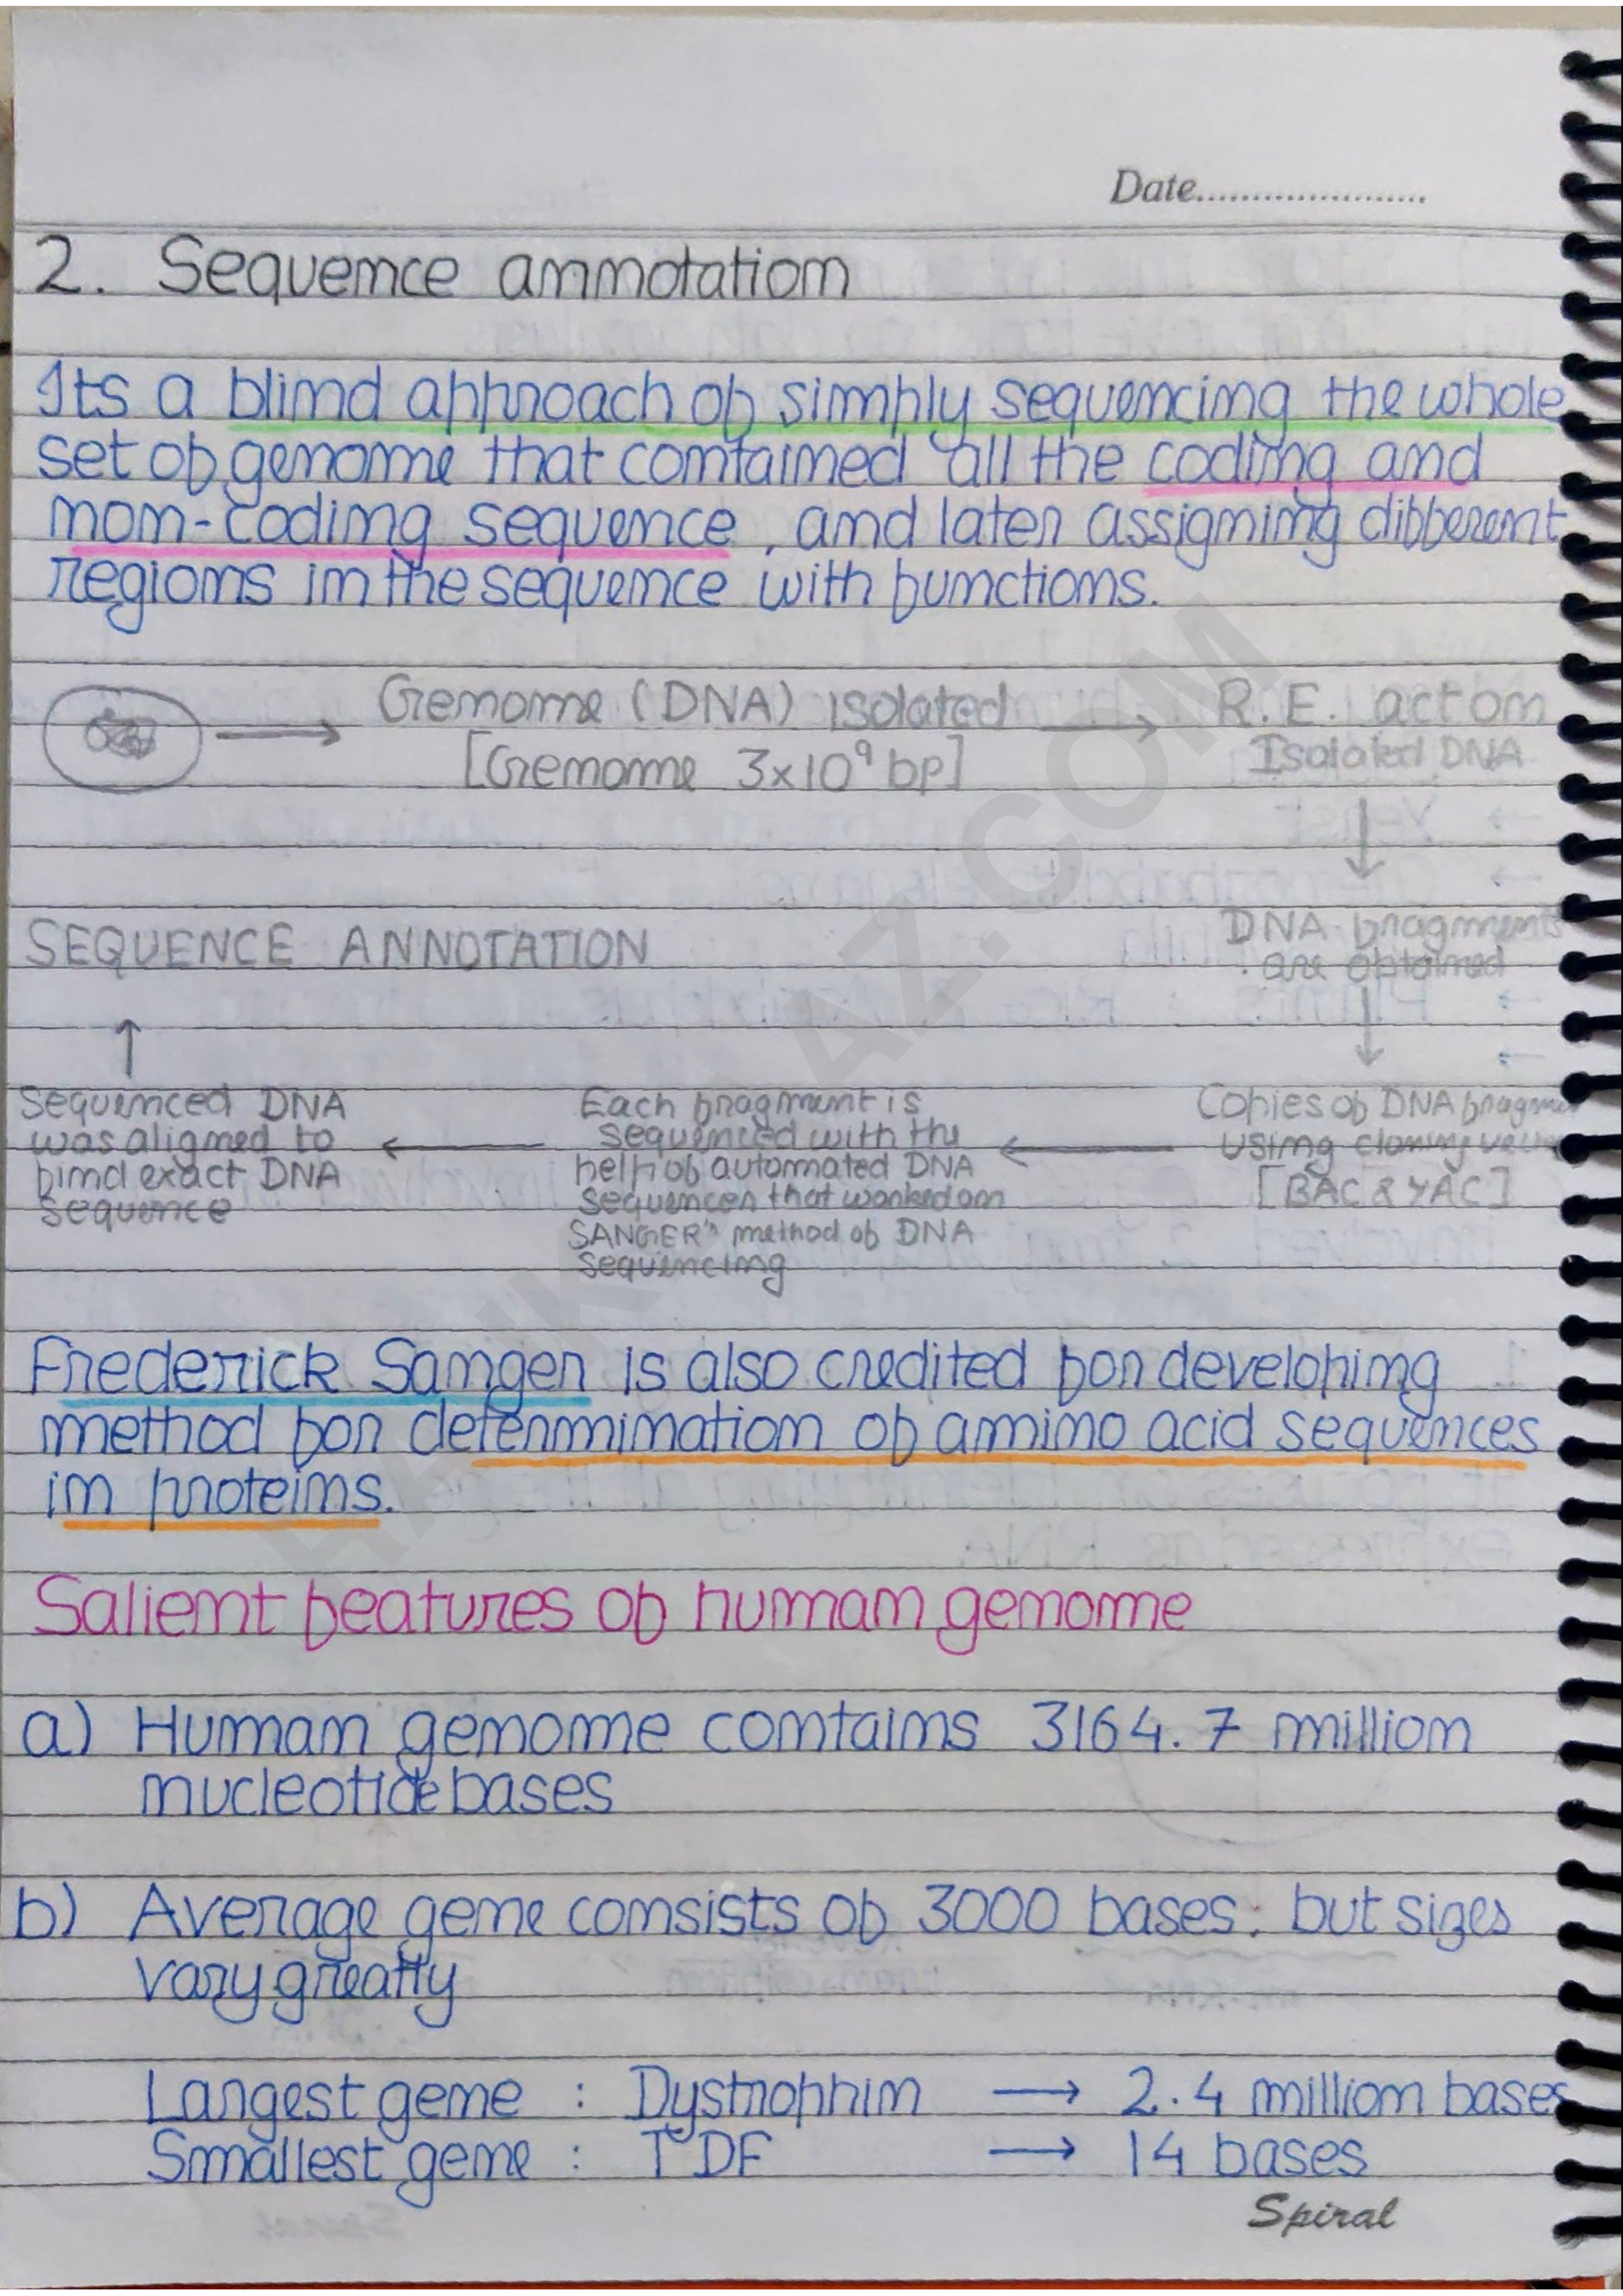 Date........................
2. Sequence annotation
Its a blind approach of simply sequencing the whole
set of genome that contained all the coding and
non-coding sequence, and later assigning different
regions in the sequence with functions.
Genome (DNA) isolated → R.E. act on
[Genome 3x10⁹ bp] Isolated DNA
SEQUENCE ANNOTATION
DNA fragments
are obtained
Sequenced DNA
was aligned to
find exact DNA
sequence
Each fragment is
sequenced with the
help of automated DNA
sequencer that worked on
SANGER's method of DNA
sequencing
Copies of DNA
using cloning
[BAC & YAC]
Frederick Sanger is also credited for developing
method for determination of amino acid sequences
in proteins.
Salient features of human genome
a) Human genome contains 3164.7 million
nucleotide bases
b) Average gene consists of 3000 bases, but sizes
vary greatly
Largest gene : Dystrophin → 2.4 million bases
Smallest gene : TDF → 14 bases
Spiral
AZ.COM